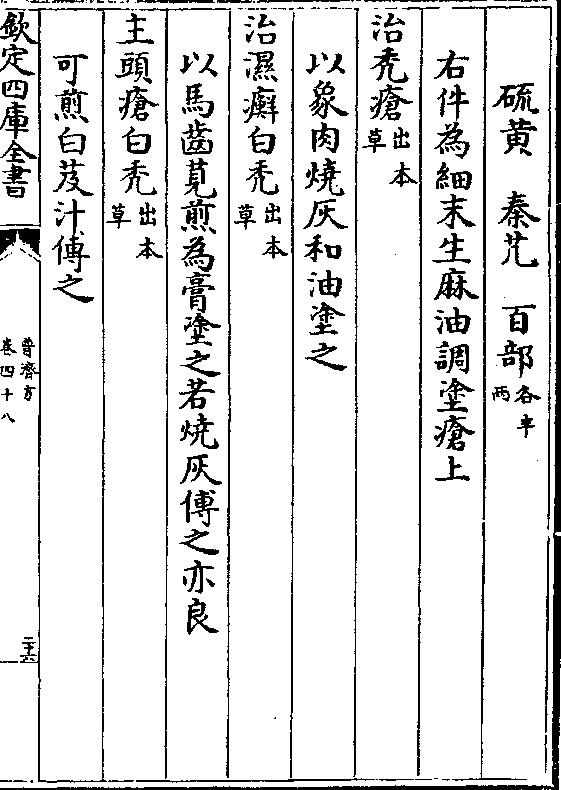 硫黄　秦艽　百部各半兩
右件為細末生麻油調塗瘡上
治禿瘡出本草
以象肉燒灰和油塗之
治濕癬白禿出本草
以馬齒莧煎為膏塗之若燒灰傅之亦良
主頭瘡白禿出本草
可煎白芨汁傅之
欽定四庫全書
普濟方
卷四十八
二十六